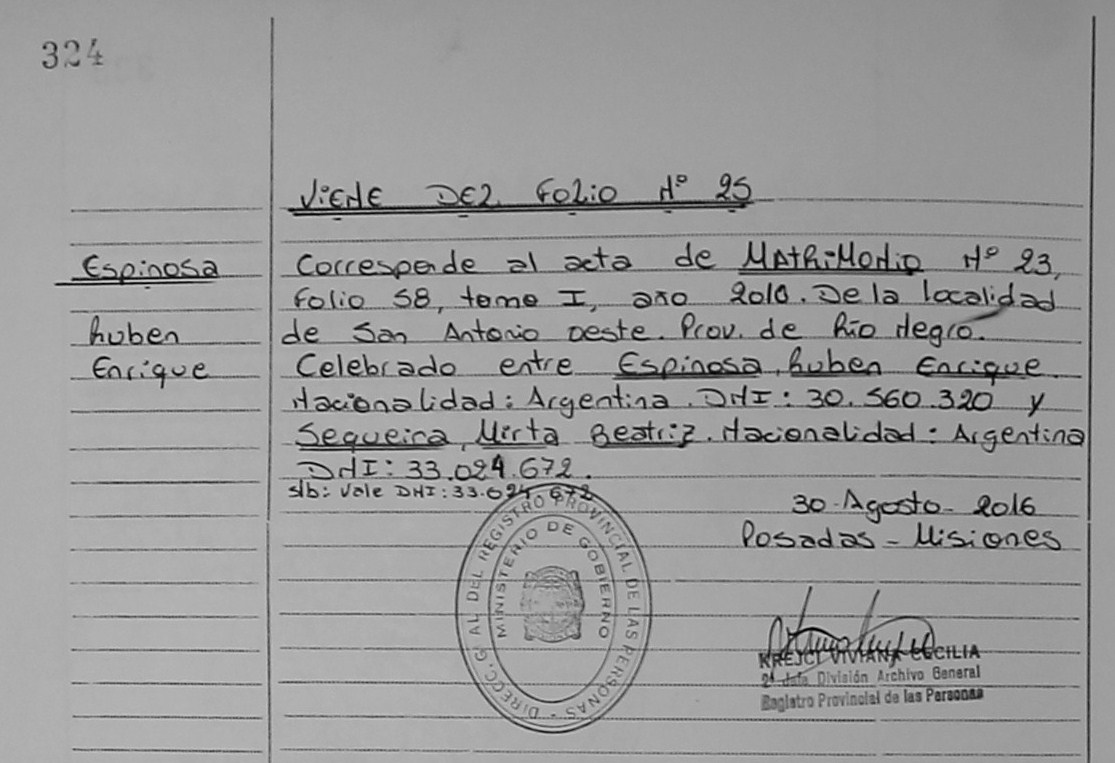 324
Viene del folio Nº 25
Espinosa
Ruben
Enrique
Corresponde al acta de Matrimonio Nº 23,
folio 58, tomo I, año 2010. De la localidad
de San Antonio oeste. Prov. de Río Negro.
Celebrado entre Espinosa, Ruben Enrique.
Nacionalidad: Argentina. DNI: 30.560.320 y
Sequeira, Mirta Beatriz. Nacionalidad: Argentina
DNI: 33.024.672.
s/b: vale DNI: 33.024.672
30-Agosto-2016
Posadas - Misiones
DIRECC. G/ AL DEL REGISTRO PROVINCIAL DE LAS PERSONAS -
MINISTERIO DE GOBIERNO
KREJCI VIVIANA CECILIA
2ª Jefa División Archivo General
Registro Provincial de las Personas